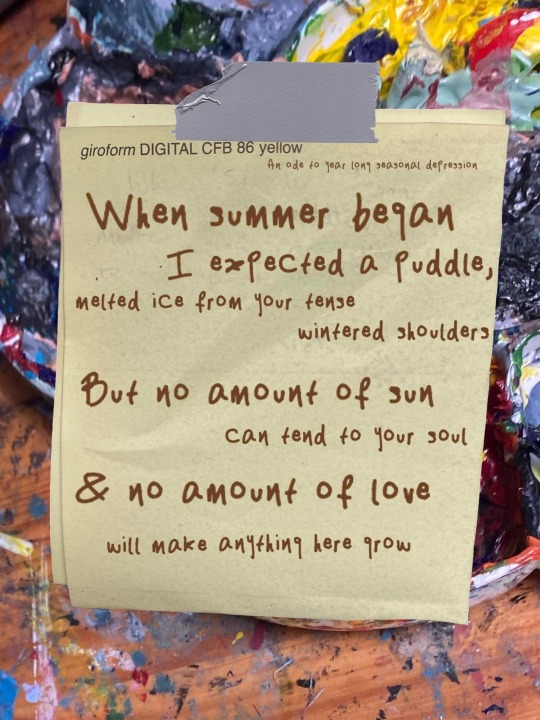 giroform DIGITAL CFB 86 yellow
An ode to year long seasonal depression
When summer began
I expected a puddle,
melted ice from your tense
wintered shoulders
But no amount of sun
can tend to your soul
& no amount of love
will make anything here grow